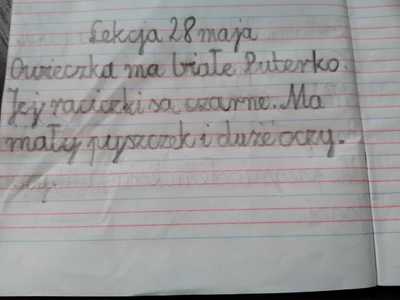 Lekcja 28 maja
Owieczka ma białe futerko.
Jej raciczki są czarne. Ma
mały pyszczek i duże oczy.